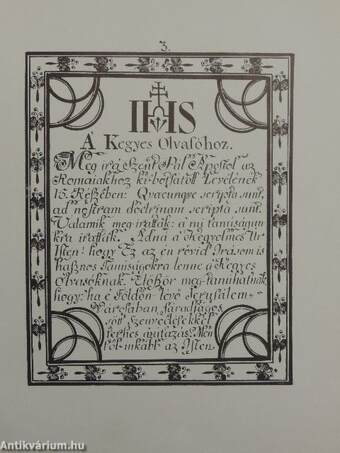 3.
IHS
A Kegyes Olvasóhoz.
Meg irá Szent Pál Apostol az
Romaiakhoz ki-bolsátott Levelének
15. Részében: Quacunque scripta sunt,
ad nostram doctrinam scripta sunt.
Valamik meg-irattak: a mi tanuságun
kra irattak. Adná a Kegyelmes Ur
Isten: hogy Ez az én rövid Irásom is
hasznos Tanuságokra lenne a Kegyes
Olvasóknak. Elöbör meg-tanúlhatnák
hogy: ha é Földön-levö Jerusalem-
Városában fáradságos
sött Szenvedésekkel
terhes útazás: Men
töl-inkább az Isten
Antikvárium.hu